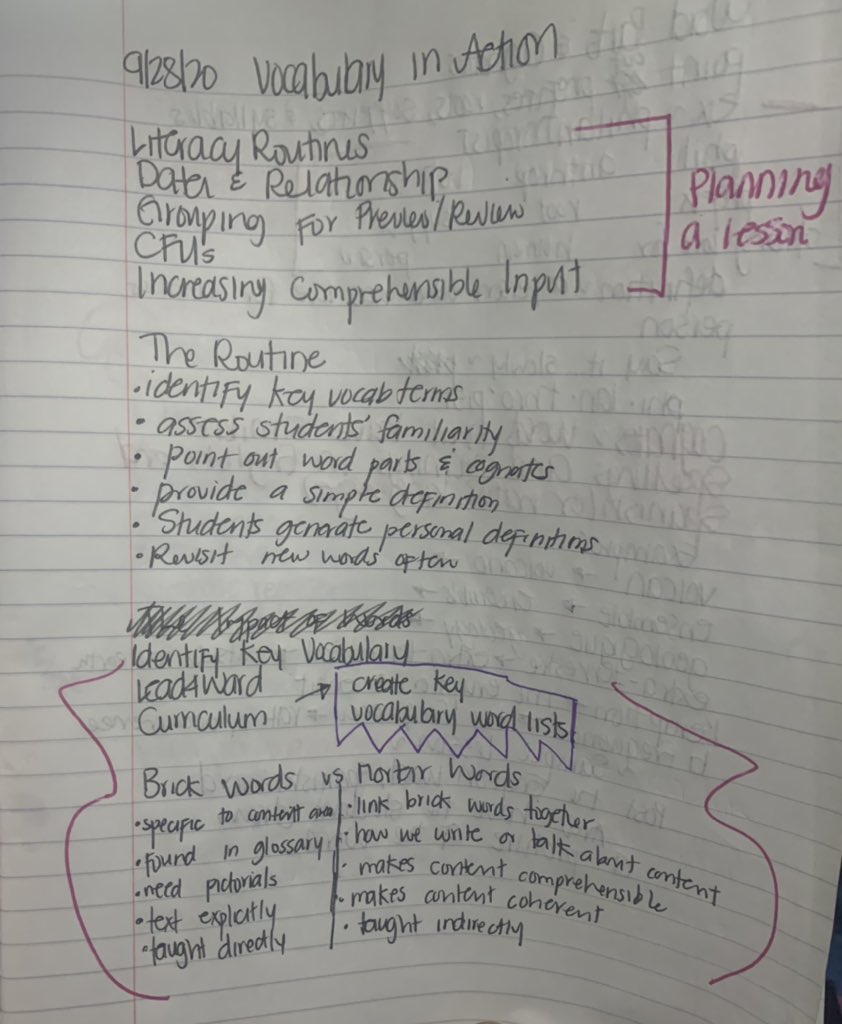 9/28/20 Vocabulary in Action
Literacy Routines
Data & Relationship
Grouping for Preview/Review
CFUs
Increasing Comprehensible Input
Planning
a lesson
The Routine
• identify key vocab terms
• assess students' familiarity
• point out word parts & cognates
• provide a simple definition
• Students generate personal definitions
• Revisit new words often
Identify Key Vocabulary
Lead4Ward → create key
Curriculum vocabulary word lists
Brick Words vs Mortar Words
• specific to content area
• found in glossary
• need pictorials
• text explicitly
• taught directly
• link brick words together
• how we write or talk about content
• makes content comprehensible
• makes content coherent
• taught indirectly